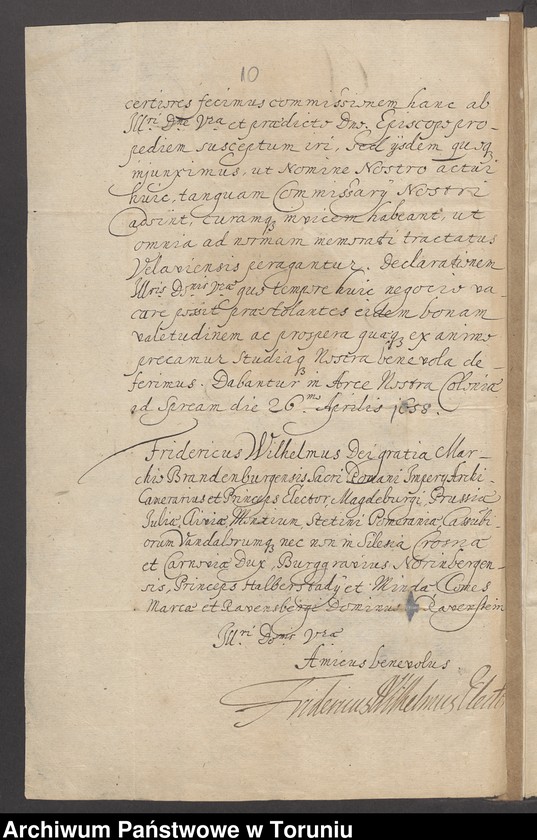 10
certiores fecimus commissionem hanc ab
Illri. Dne Vra et prædicto Dno. Episcopo pro-
pediem susceptum iri, sed ijsdem quoq
injunximus, ut Nomine Nostro actui
huic, tanquam Commissary Nostri
adsint, curamq invicem habeant, ut
omnia ad normam memorati tractatus
Velaviensis peragantur. Declarationem
Illris Donis Vræ quo tempore huic negocio va-
care possit præstolantes eidem bonam
valetudinem ac prospera quæq ex animo
precamur Studiaq Nostra benevola de-
ferimus. Dabantur in Arce Nostra Coloniæ
ad Spream die 26 mo Aprilis 1658.
Fridericus Wilhelmus Dei gratia Mar-
chio Brandenburgensis, Sacri Romani Impery Archi
Camerarius et Princeps Elector, Magdeburgi, Prussiæ
Juliæ, Cliviæ, Montium, Stetini Pomeraniæ, Cassubi-
orum Vandalorumq, nec non in Silesia Crosnæ
et Carnoviæ Dux, Burggravius Norinbergen-
sis, Princeps Halberstadij et Mindæ Comes
Marcæ et Ravensbergæ Dominus Ravenstein
Illri Donis Vræ
Amicus benevolus.
Fridericus Wilhelmus Elector
Archiwum Państwowe w Toruniu